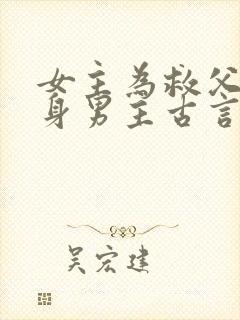 女主為救父
身男主古言
吴宏建